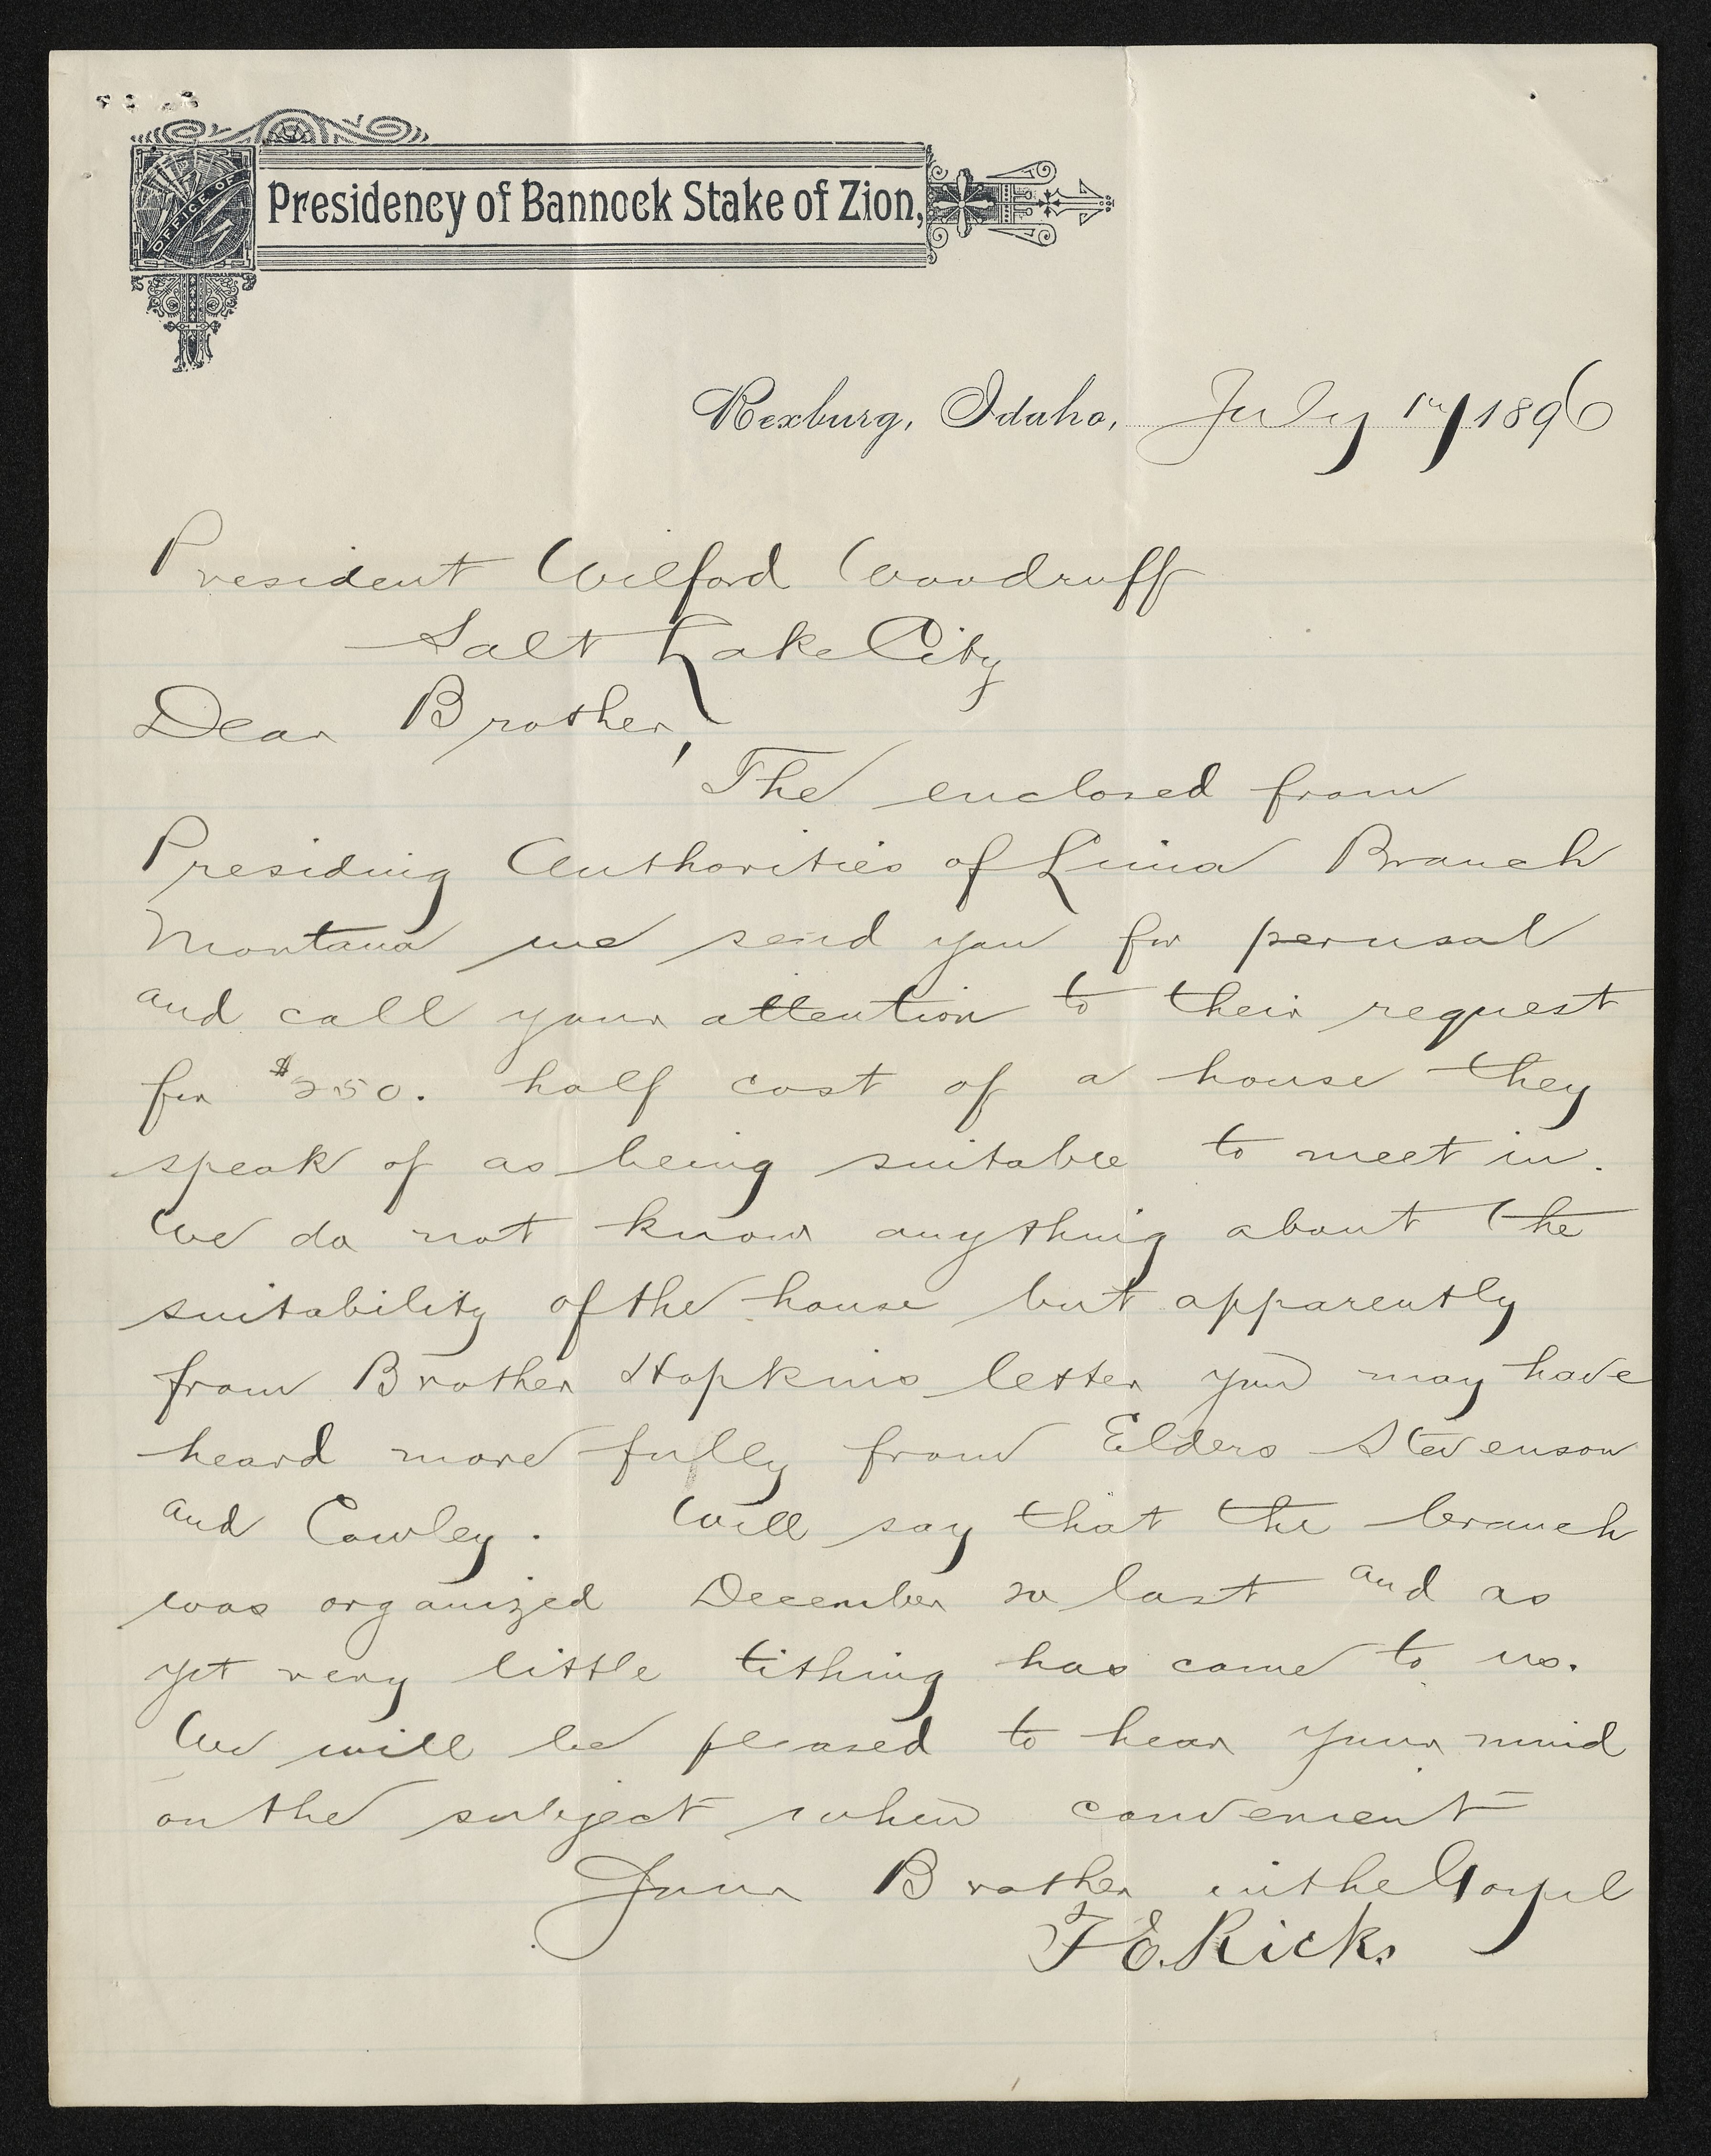 OFFICE OF
Presidency of Bannock Stake of Zion,
Rexburg, Idaho, July 17 1896
President Wilford Woodruff
Salt Lake City
Dear Brother,
The enclosed from
Presiding Authorities of Lima Branch
Montana we send you for perusal
and call your attention to their request
for $250. half cost of a house they
speak of as being suitable to meet in.
We do not know anything about the
suitability of the house but apparently
from Brother Hopkins letter you may have
heard more fully from Elders Stevenson
and Cowley. Will say that the branch
was organized December last and as
yet very little tithing has come to us.
We will be pleased to hear your mind
on the subject when convenient
Your Brother in the Gospel
T E. Ricks